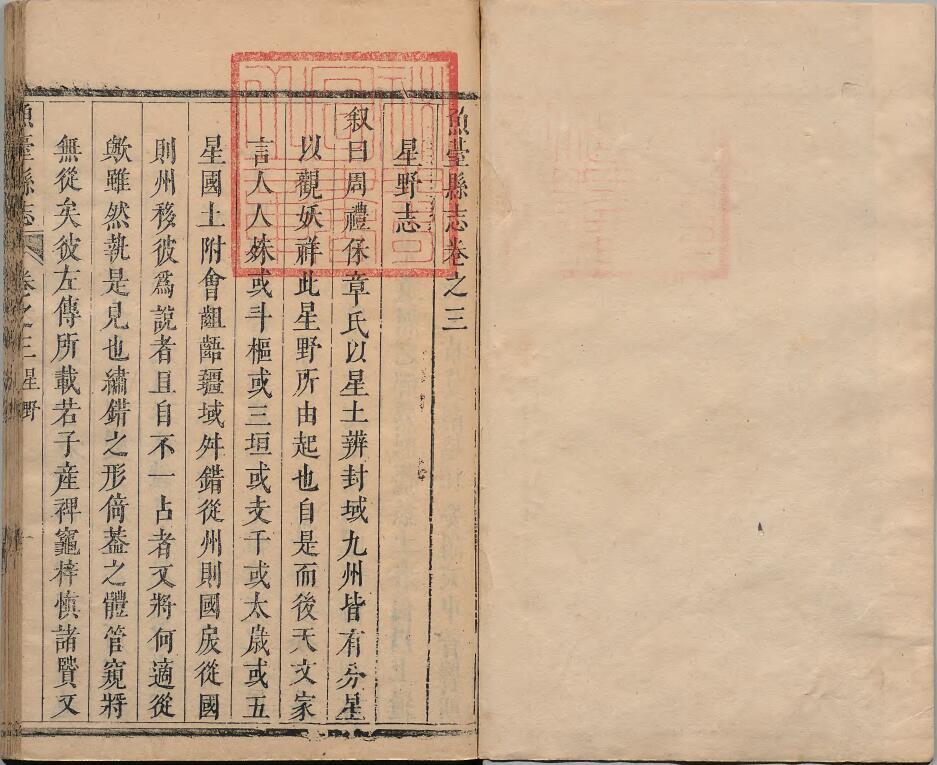 魚臺縣志卷之三
星野志
叙曰周禮保章氏以星土辨封域九州皆有分星
以觀妖祥此星野所由起也自是而後天文家
言人人殊或斗樞或三垣或支干或太歲或五
星國土附會齟齬疆域舛錯從州則國戾從國
則州移彼爲說者且自不一占者又將何適從
歟雖然執是見也繡錯之形倚蓋之體管窺將
無從矣彼左傳所載若子產裨竈梓慎諸賢又
魚臺縣志 卷之三 星野 一